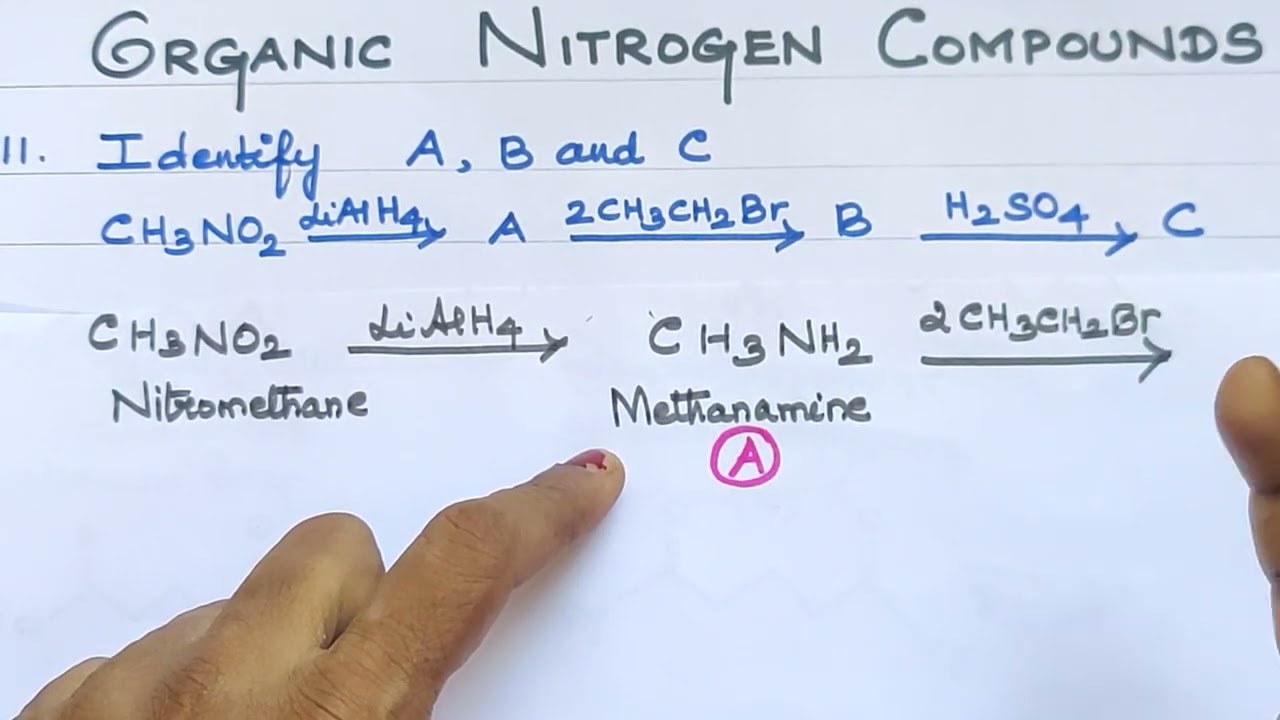 ORGANIC NITROGEN COMPOUNDS
11. Identify A, B and C
CH3NO2 LiAlH4 → A 2CH3CH2Br → B H2SO4 → C
CH3NO2 LiAlH4 → CH3NH2 2CH3CH2Br →
Nitromethane Methanamine
A